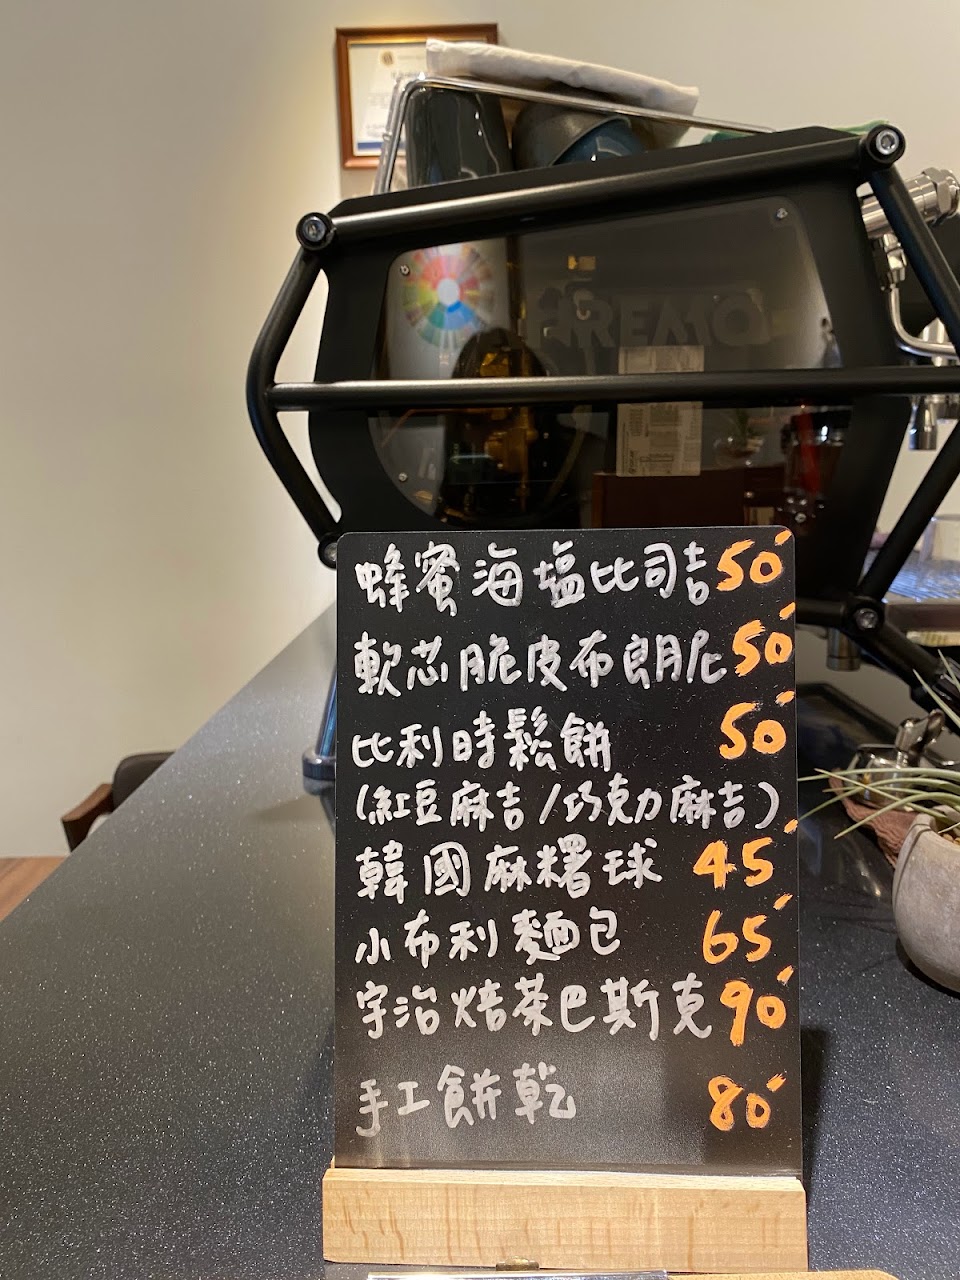 FIREMO
蜂蜜海塩比司吉 50
軟芯脆皮布朗尼 50
比利時鬆餅 50
(紅豆麻吉/巧克力麻吉)
韓國麻糬球 45
小布利麵包 65
宇治焙茶巴斯克 90
手工餅乾 80